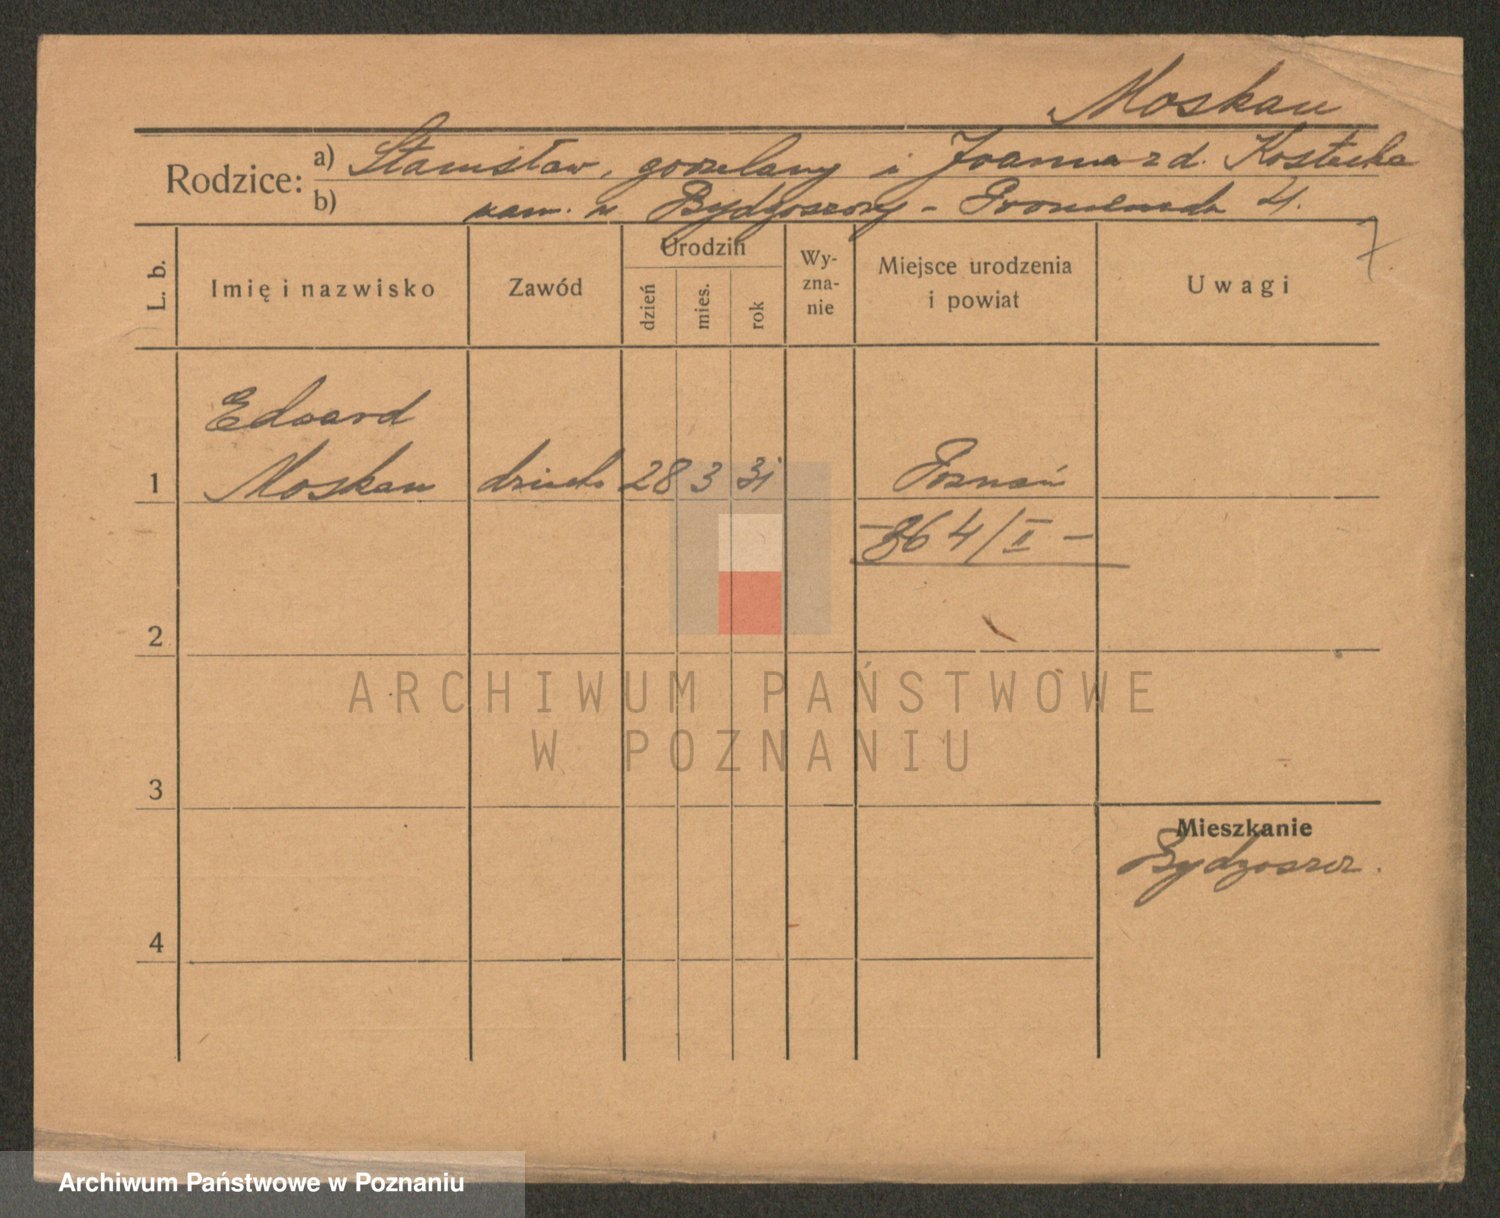 Moskau
Rodzice: a) Stanisław, gorzelany i Joanna z d. Kostecka
b) zam. w Bydgoszczy - Promenada 4.
7
L. b. Imię i nazwisko Zawód Urodzin dzień mies. rok Wyznanie Miejsce urodzenia i powiat Uwagi
Edward
1 Moskau dziecko 28 3 31 Poznań
-864/II-
2
ARCHIWUM PAŃSTWOWE
W POZNANIU
3
Mieszkanie
Bydgoszcz.
4
Archiwum Państwowe w Poznaniu